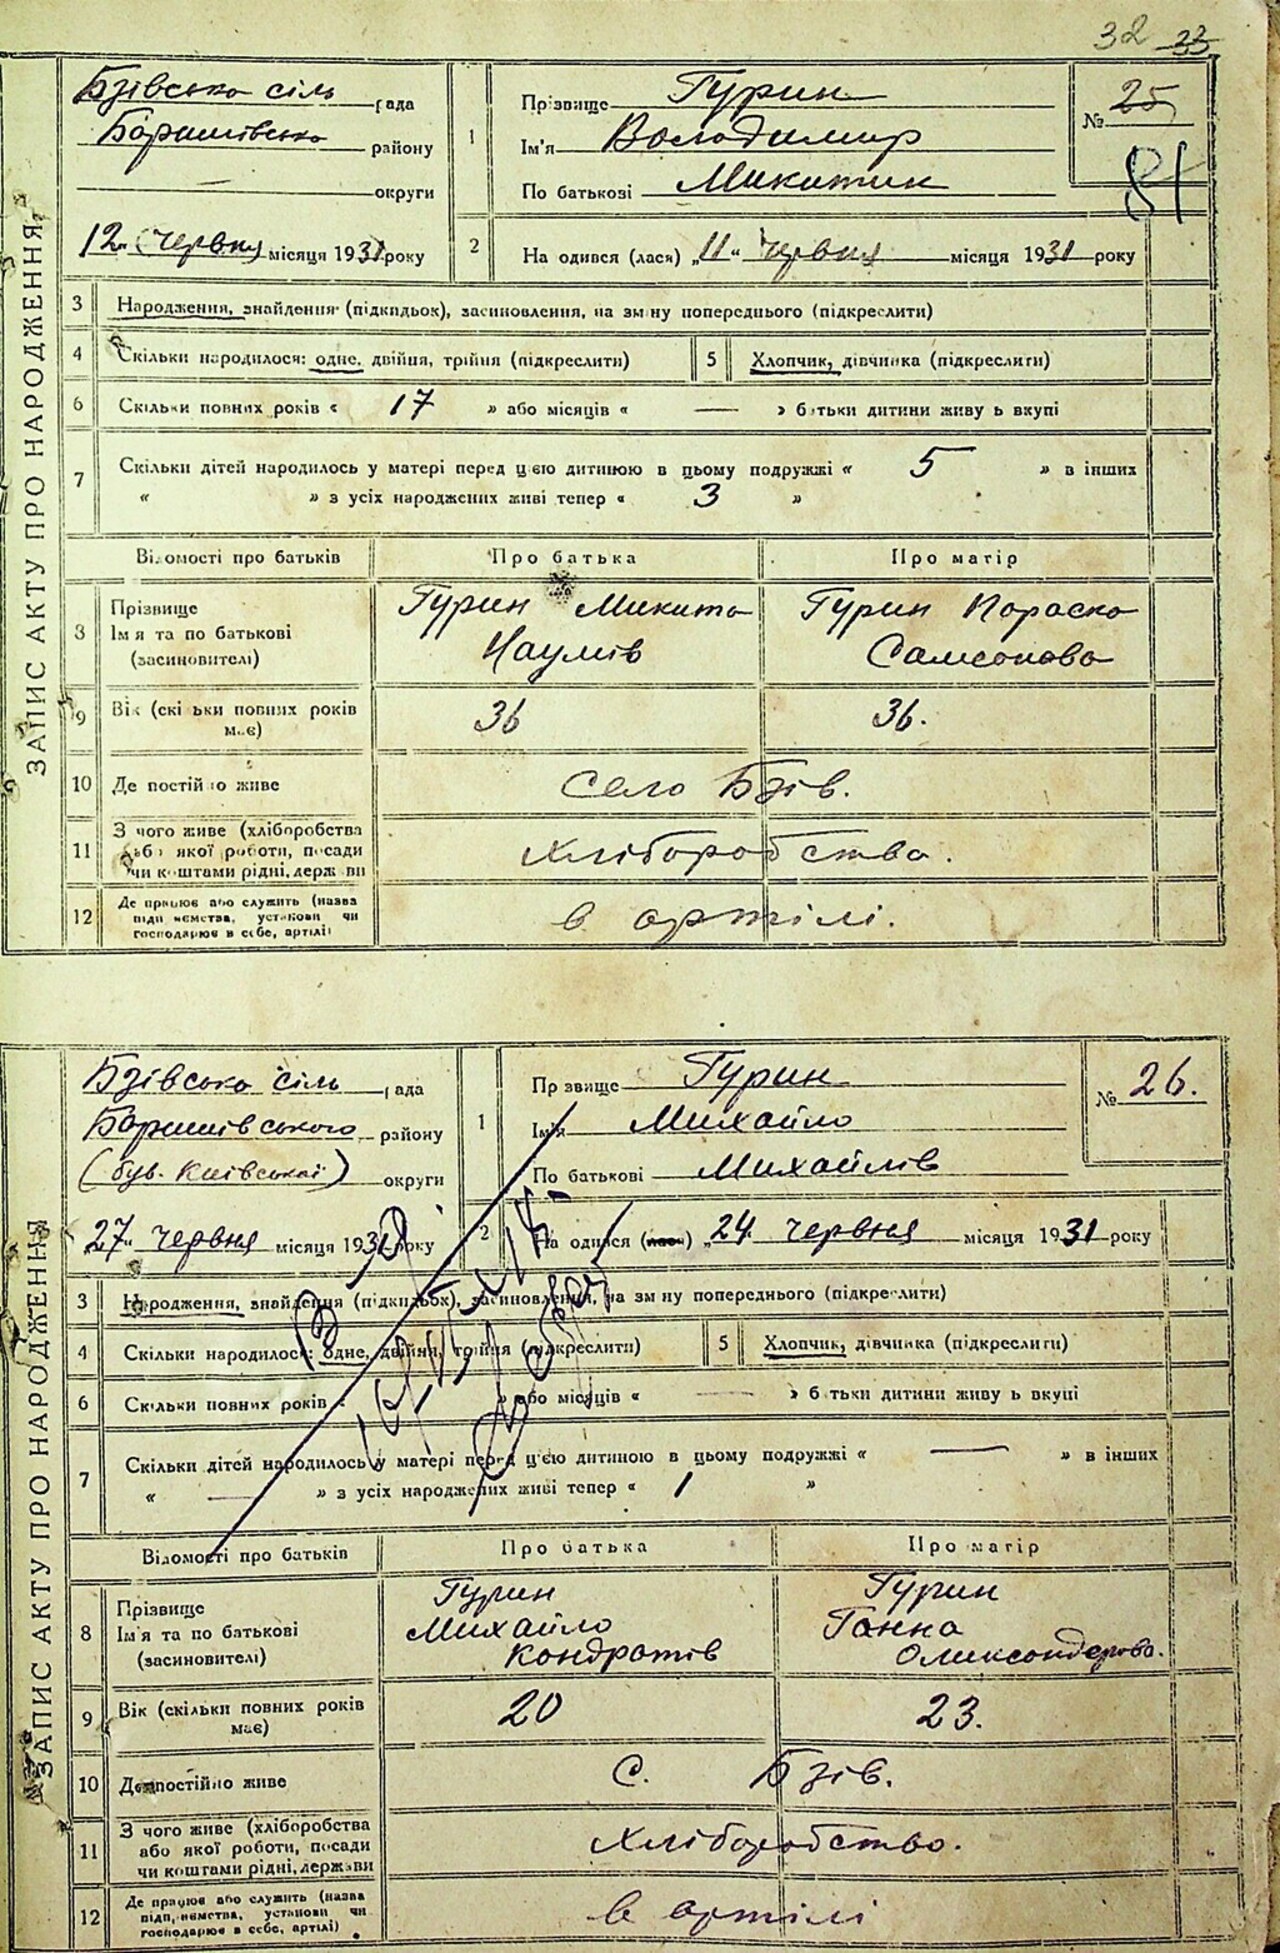 32 33
ЗАПИС АКТУ ПРО НАРОДЖЕННЯ
Бзівська сіль рада
Баришівсько району
— округи
12 червня місяця 1931 року
1
Прізвище Гурин
Ім'я Володимир
По батькові Микитин
№ 25
2 На одився (лася) „11“ червня місяця 1931 року
3 Народження, знайдення (підкидьок), засиновлення, на зміну попереднього (підкреслити)
4 Скільки народилося: одне, двійня, трійня (підкреслити) 5 Хлопчик, дівчинка (підкреслити)
6 Скільки повних років « 17 » або місяців « — » батьки дитини живу ь вкупі
7 Скільки дітей народилось у матері перед цією дитиною в цьому подружжі « 5 » в інших
« » з усіх народжених живі тепер « 3 »
Відомості про батьків Про батька Про матір
8 Прізвище Ім'я та по батькові (засиновителі) Гурин Микита Наумів Гурин Параска Самсонова
9 Вік (скільки повних років має) 36 36.
10 Де постійно живе Село Бзів.
11 З чого живе (хліборобства або якої роботи, посади чи коштами рідні, держави Хліборобство.
12 Де працює або служить (назва підприємства, установи чи господарює в себе, артілі) в артілі.
ЗАПИС АКТУ ПРО НАРОДЖЕННЯ
Бзівська сіль рада
Баришівського району
(був. Київської) округи
27 червня місяця 1931 року
1
Пр звище Гурин
Ім'я Михайло
По батькові Михайлів
№ 26.
2 На одився (лася) „24. червня місяця 1931 року
3 Народження, знайдення (підкидьок), засиновлення, на зміну попереднього (підкреслити)
4 Скільки народилося: одне, двійня, трійня (підкреслити) 5 Хлопчик, дівчинка (підкреслити)
6 Скільки повних років » або місяців « — » батьки дитини живу ь вкупі
7 Скільки дітей народилось у матері перед цією дитиною в цьому подружжі « — » в інших
« — » з усіх народжених живі тепер « 1 »
Відомості про батьків Про батька Про матір
8 Прізвище Ім'я та по батькові (засиновителі) Гурин Михайло Кондратів Гурин Ганна Олександрова.
9 Вік (скільки повних років має) 20 23.
10 Де постійно живе С. Бзів.
11 З чого живе (хліборобства або якої роботи, посади чи коштами рідні, держави Хліборобство.
12 Де працює або служить (назва підприємства, установи чи господарює в себе, артілі) в артілі